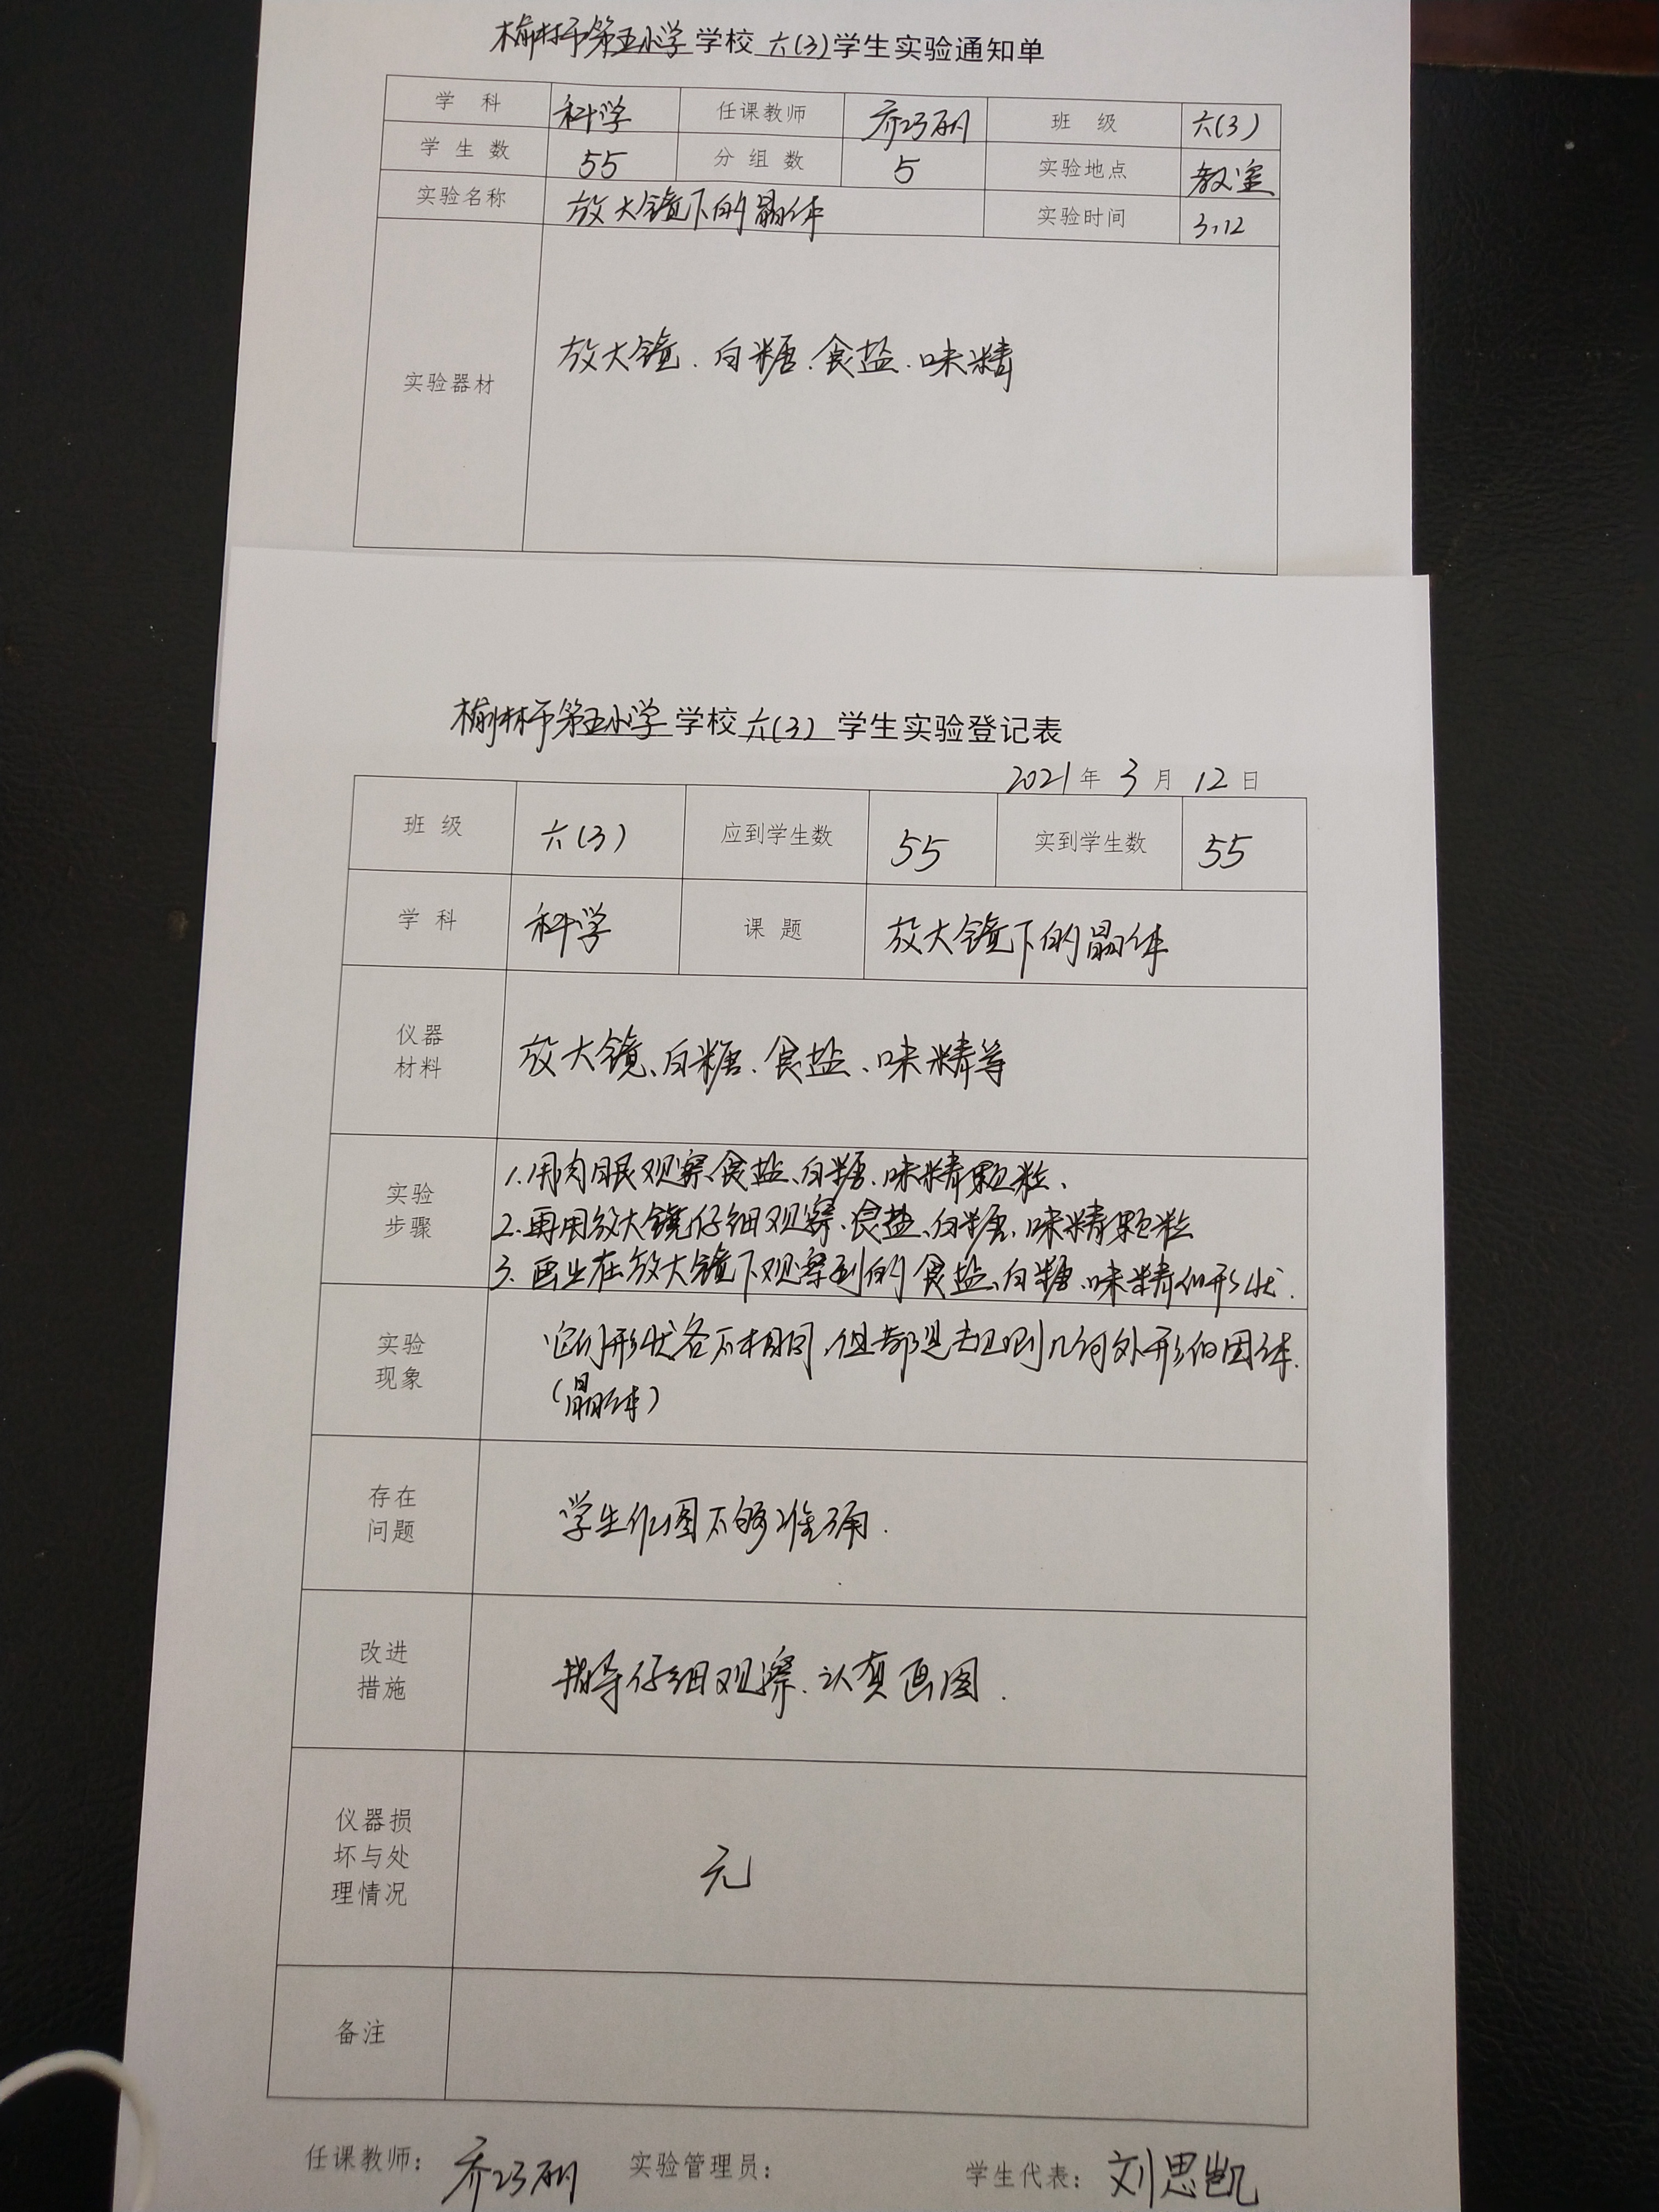 榆林市第五小学学校六(3)学生实验通知单
学 科 科学 任课教师 乔巧丽 班 级 六(3)
学生数 55 分组数 5 实验地点 教室
实验名称 放大镜下的晶体 实验时间 3.12
实验器材 放大镜.白糖.食盐.味精
榆林市第五小学学校六(3)学生实验登记表
2021年3月12日
班 级 六(3) 应到学生数 55 实到学生数 55
学 科 科学 课 题 放大镜下的晶体
仪器
材料
放大镜、白糖.食盐、味精等
实验
步骤
1.用肉眼观察食盐、白糖.味精颗粒、
2.再用放大镜仔细观察.食盐、白糖.味精颗粒
3.画出在放大镜下观察到的食盐、白糖.味精的形状.
实验
现象
它们形状各不相同,但都是有规则几何外形的固体.
(晶体)
存在
问题
学生作图不够准确.
改进
措施
指导仔细观察.认真画图.
仪器损
坏与处
理情况
无
备注
任课教师：乔巧丽 实验管理员： 学生代表：刘思凯